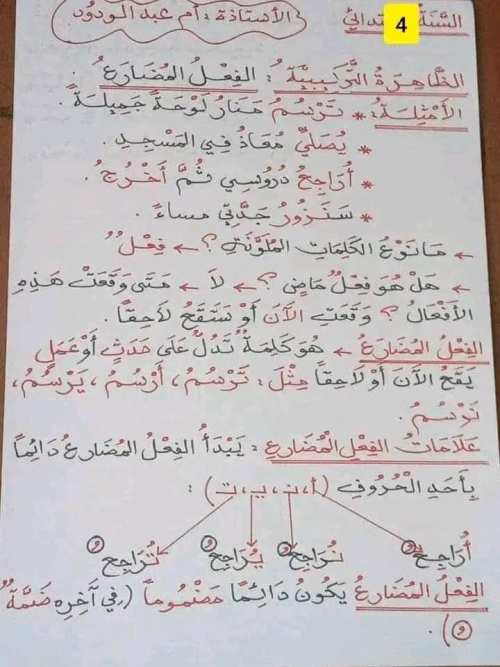 السَّنَة 4 ابتدائي الأستاذة : أم عبد الودود
الظَّاهِرَةُ التَّرْكِيبِيَّةُ : الفِعْلُ المُضَارِعُ.
الأَمْثِلَةُ : * تَرْسُمُ مَنَارُ لَوْحَةً جَمِيلَةً.
* يُصَلِّي مُعَاذُ فِي المَسْجِدِ.
* أُرَاجِعُ دُرُوسِي ثُمَّ أَخْرُجُ.
* سَنَزُورُ جَدَّتِي مساءً.
← مَا نَوْعُ الكَلِمَاتِ المُلَوَّنَةِ ؟ ← فِعْلٌ
← هَلْ هُوَ فِعْلٌ مَاضِي ؟ ← لَا ← مَتَى وَقَعَتْ هَذِهِ
الأَفْعَالُ ؟ وَقَعَتِ الآنَ أَوْ سَتَقَعُ لَاحِقاً.
الفِعْلُ المُضَارِعُ ← هُوَ كَلِمَةٌ تَدُلُّ عَلَى حَدَثٍ أَوْ عَمَلٍ
يَقَعُ الآنَ أَوْ لَاحِقاً مِثْلَ : تَرْسُمُ، أَرْسُمُ، يَرْسُمُ،
نَرْسُمُ.
عَلَامَاتُ الفِعْلِ المُضَارِعِ : يَبْدَأُ الفِعْلُ المُضَارِعُ دَائِماً
بِأَحَدِ الْحُرُوفِ (أ، ن، ي، ت) :
أُرَاجِعُ نُرَاجِعُ يُرَاجِعُ تُرَاجِعُ
الفِعْلُ المُضَارِعُ يَكُونُ دَائِماً مَضْمُوماً (فِي آخِرِهِ ضَمَّةٌ
ُ).